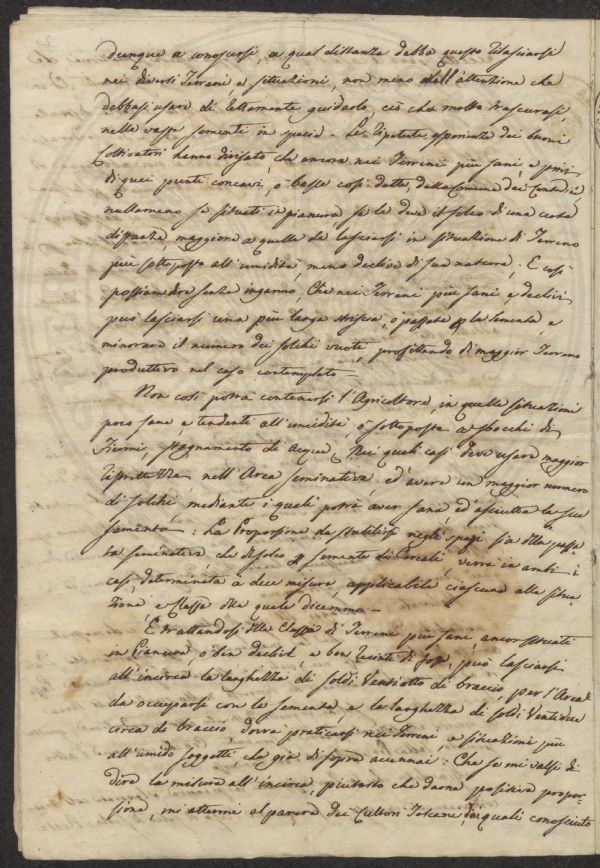 dunque a conoscersi, a qual distanza debba questo rilasciarsi
nei diversi Terreni, e situazioni, non meno dell'attenzione che
debbasi usare di rettamente guidarlo, ciò che molto trascurasi,
nelle vaste sementi in specie. Le ripetute esperienze dei buoni
Coltivatori hanno divisato, che ancora nei Terreni più sani, e privi
di quei punti concavi, o basse così dette dalla Comune dei Contadi
nullameno se situati in pianura, se le dee il solco di una certa
distanza, maggiore a quella da lasciarsi in situazione di Terreno
più sottoposto all'umidità, meno declive di sua natura. E così
possiam dire senza inganno, che nei Terreni più sani e declivi
può lasciarsi una più larga striscia, o passata p la sementa, e
minorare il numero dei solchi vuoti, profittando di maggior Terreno
produttivo nel caso contemplato =
Non così potrà contenersi l'Agricoltore, in quelle situazioni
poco sane e tendenti all'umidità, o sottoposte a sbocchi di
Fiumi, stagnamento di acque, Nei quali casi deve usare maggior
ristrettezza nell'Area seminativa, ed avere un maggior numero
di solchi, mediante i quali potrà aver sana ed asciutta la sua
sementa: La Proporzione da stabilirsi negli spazi sia della passa
ta seminativa, che di solco p sementa di Cereali verrà in ambi i
casi determinata a dece misura, applicabile ciascuna alla situa
zione e Classe della quale diremmo =
E trattandosi della Classe di Terreni più sani, ancor situati
in Pianura, o ben declivi, e ben recinti di fossi, può lasciarsi
all'incirca la larghezza di soldi Ventiotto di braccio per l'Area
da occuparsi con la sementa, e la larghezza di soldi Ventidue
circa di braccio, dovrà praticarsi nei Terreni, e situazioni più
all'umido soggetti, che già di sopra accennai: Che se mi valsi di
dire la misura all'incirca, piutosto che darne positiva propor
zione, mi attenni al parere dei Cultori Toscani, dai quali conosciuto